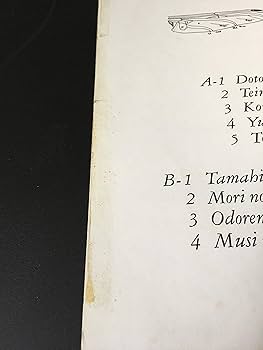 A-1 Doto
2 Tein
3 Ko
4 Yu
5 T
B-1 Tamahi
2 Mori no
3 Odoren
4 Musi